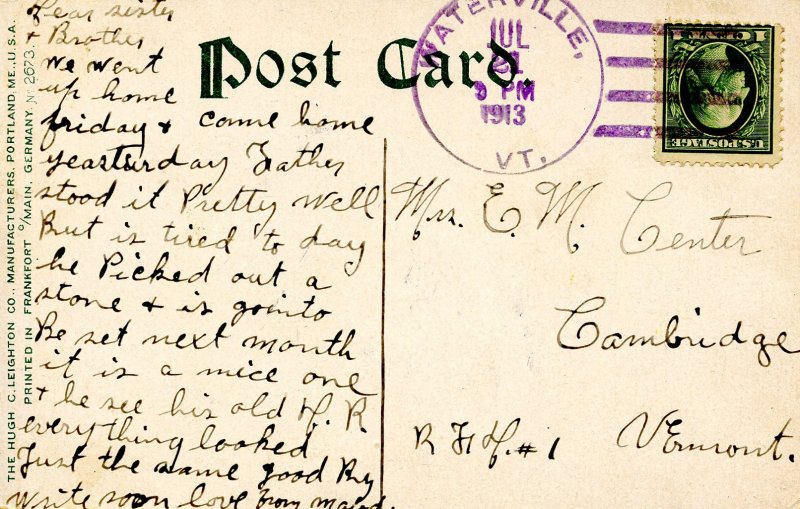 Dear sister
& Brother
we went
up home
friday & come home
yeasturday Father
stood it Pretty well
But is tired to day
he Picked out a
stone & is gointo
Be set next month
it is a nice one
& he see his old H. R.
everything looked
Just the same good By
write soon love from
Post Card.
WATERVILLE,
JUL
21
9 PM
1913
VT.
1 CENT 1
U.S. POSTAGE
Mrs. E. M. Center
Cambridge
R F D. #1 Vermont.
THE HUGH C. LEIGHTON CO., MANUFACTURERS, PORTLAND, ME., U.S.A.
PRINTED IN FRANKFORT O/MAIN, GERMANY. No 2673.